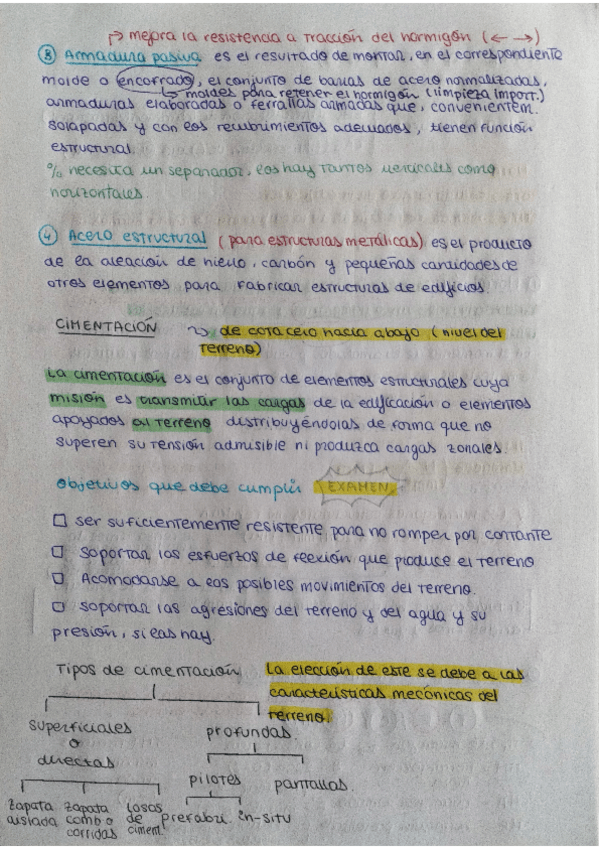 → mejora la resistencia a tracción del hormigón (← →)
③ Armadura pasiva es el resultado de montar, en el correspondiente
molde o encofrado, el conjunto de barras de acero normalizadas,
→ moldes para retener el hormigón (limpieza import.)
armaduras elaboradas o ferrallas armadas que, convenientem.
solapadas y con los recubrimientos adecuados, tienen función
estructural.
% necesita un separador, los hay tantos verticales como
horizontales.
④ Acero estructural (para estructuras metálicas) es el producto
de la aleación de hierro, carbón y pequeñas cantidades de
otros elementos para fabricar estructuras de edificios.
CIMENTACIÓN ~> de cota cero hacia abajo (nivel del
terreno)
La cimentación es el conjunto de elementos estructurales cuya
misión es transmitir las cargas de la edificación o elementos
apoyados al terreno distribuyéndolas de forma que no
superen su tensión admisible ni produzca cargas zonales.
Objetivos que debe cumplir EXAMEN
□ ser suficientemente resistente para no romper por cortante
□ Soportar los esfuerzos de flexión que produce el terreno
□ Acomodarse a los posibles movimientos del terreno.
□ soportar las agresiones del terreno y del agua y su
presión, si las hay.
Tipos de cimentación
La elección de este se debe a las
características mecánicas del
terreno.
superficiales
o
directas
profundas.
pilotes
pantallas.
zapata
aislada
zapata
comb o
corridas
losas
de
ciment.
prefabri.
in-situ